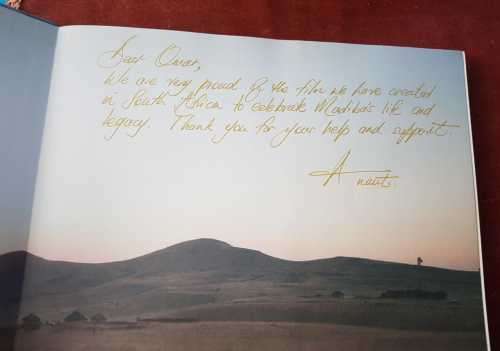 Dear Omar,
We are very proud of the film we have created
in South Africa to celebrate Madiba's life and
legacy. Thank you for your help and support.
Anant